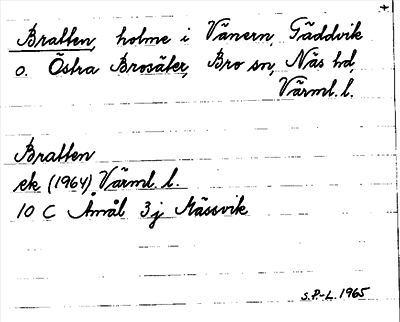 Bratten, holme i Vänern, Gäddvik
o. Östra Brosäter, Bro sn, Näs hd,
Värml. l.
Bratten
ek (1964) Värml. l.
10 C Åmål 3j Mässvik
S.P.-L. 1965